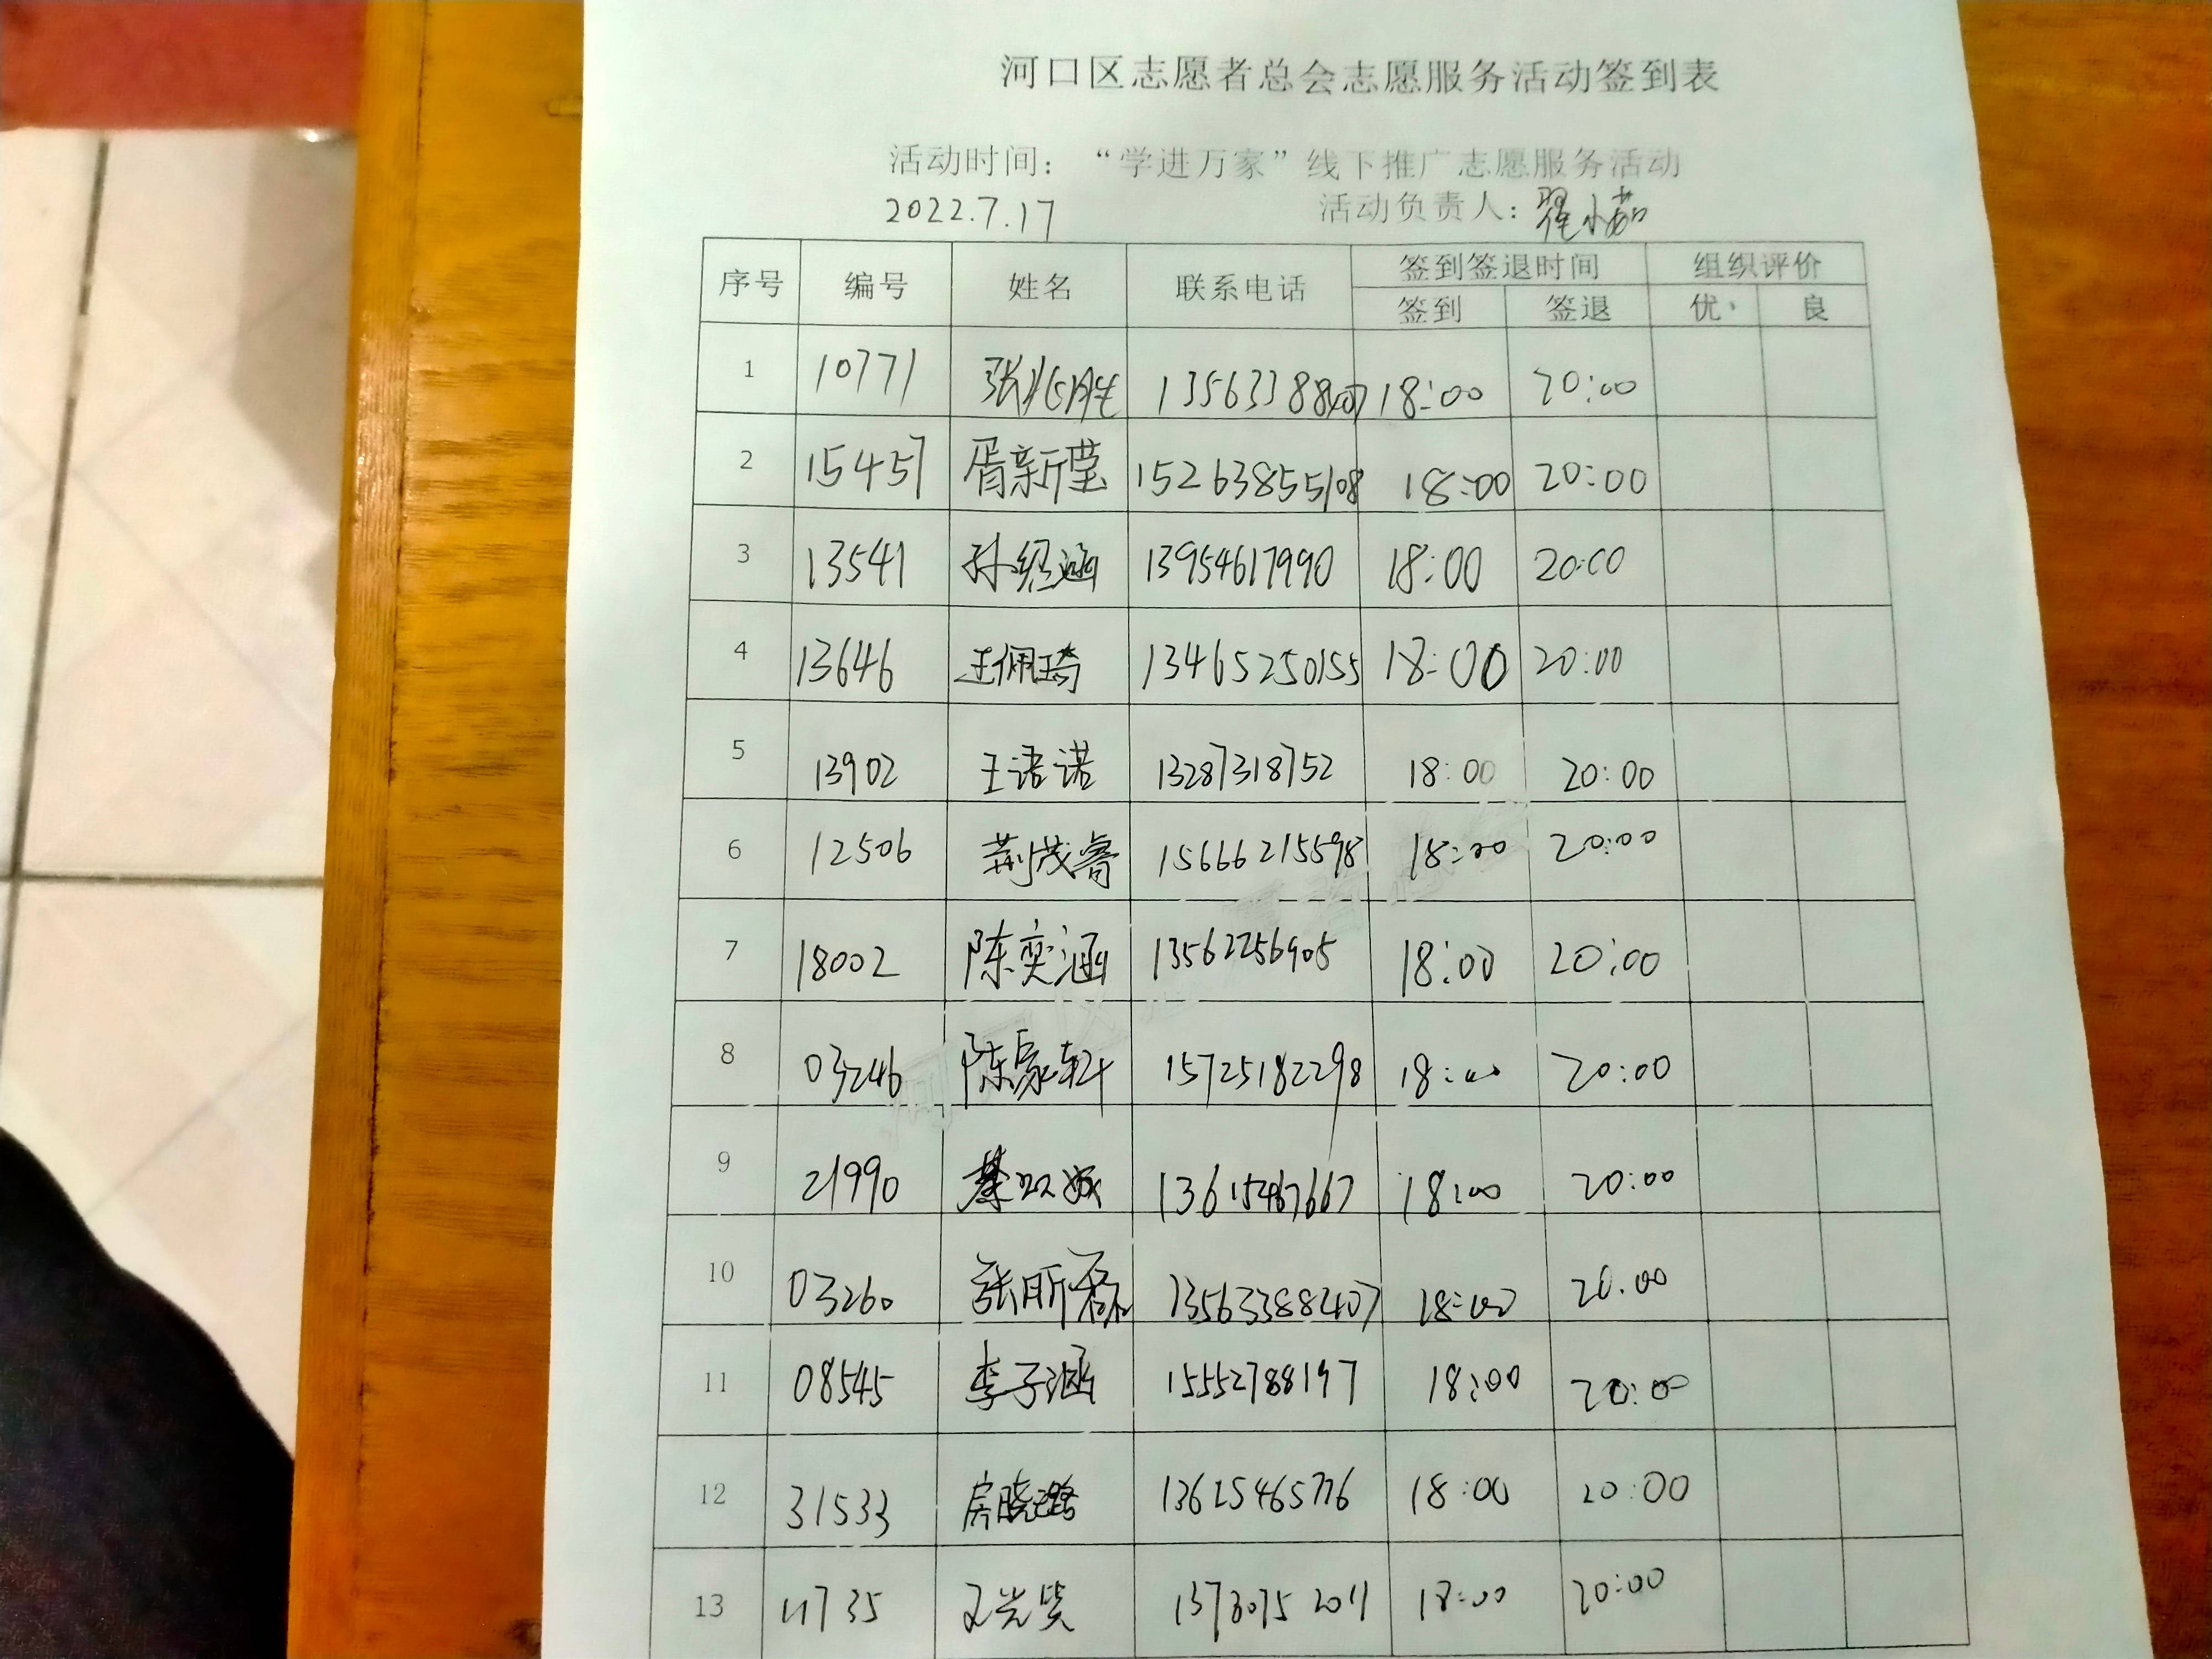 河口区志愿者总会志愿服务活动签到表
活动时间：“学进万家”线下推广志愿服务活动
2022.7.17 活动负责人：翟小茹
序号 编号 姓名 联系电话 签到签退时间 组织评价
签到 签退 优、 良
1 10771 张兆胜 13563388407 18:00 20:00
2 15457 胥新莹 15263855108 18:00 20:00
3 13541 孙绍涵 13954617990 18:00 20:00
4 13646 王佩琦 13465250155 18:00 20:00
5 13902 王诺诺 13287318752 18:00 20:00
6 12506 荆茂睿 15666215598 18:00 20:00
7 18002 陈奕涵 13562256905 18:00 20:00
8 03246 陈家轩 15725182298 18:00 20:00
9 21990 13615467667 18:00 20:00
10 03260 张昕 13563388407 18:00 20.00
11 08545 李子涵 15552788197 18:00 20:00
12 31533 房晓璐 13625465776 18:00 20:00
13 18:00 20:00